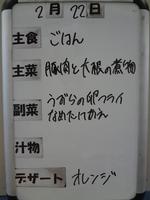 2月22日
主食 ごはん
主菜 豚肉と大根の煮物
副菜 うずらの卵フライ
なめたけかえ
汁物
デザート オレンジ